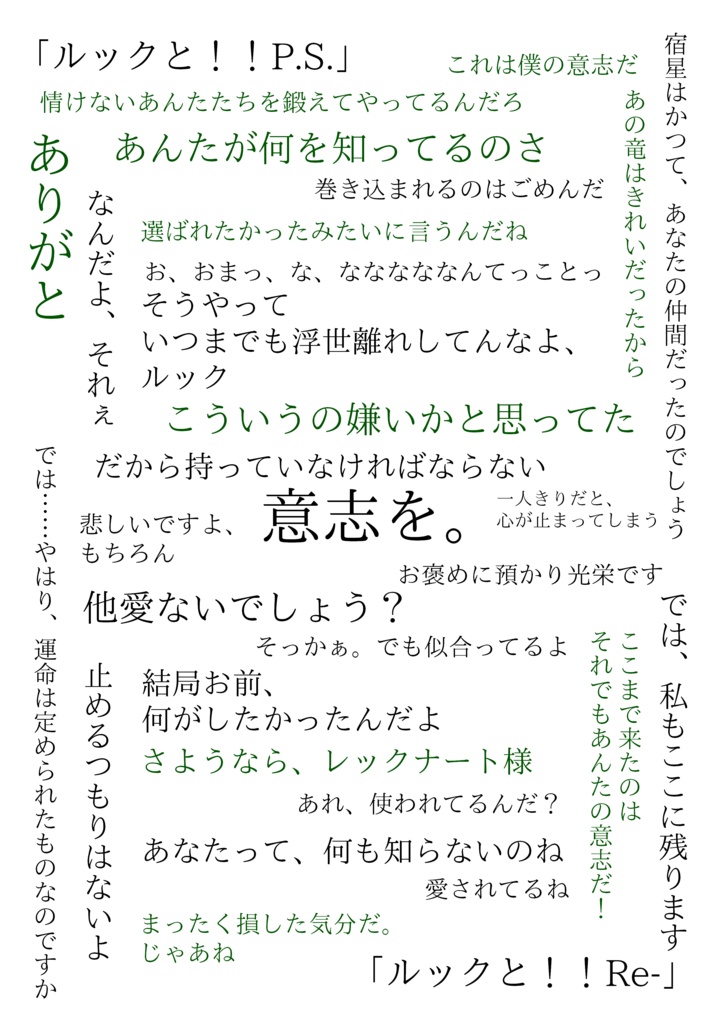 「ルックと！！P.S.」
これは僕の意志だ
宿星はかつて、あなたの仲間だったのでしょう
あの竜はきれいだったから
情けないあんたたちを鍛えてやってるんだろ
ありがと
あんたが何を知ってるのさ
巻き込まれるのはごめんだ
なんだよ、それぇ
選ばれたかったみたいに言うんだね
お、おまっ、な、なななななんてっことっ
そうやって
いつまでも浮世離れしてんなよ、
ルック
こういうの嫌いかと思ってた
だから持っていなければならない
意志を。
一人きりだと、
心が止まってしまう
悲しいですよ、
もちろん
では……やはり、運命は定められたものなのですか
お褒めに預かり光栄です
他愛ないでしょう？
では、私もここに残ります
そっかぁ。でも似合ってるよ
ここまで来たのは
それでもあんたの意志だ！
止めるつもりはないよ
結局お前、
何がしたかったんだよ
さようなら、レックナート様
あれ、使われてるんだ？
あなたって、何も知らないのね
愛されてるね
まったく損した気分だ。
じゃあね
「ルックと！！Re-」